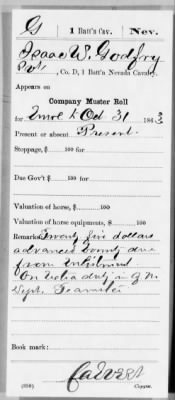 G | 1 Batt's Cav. | Nev.
Isaac W. Godfry
Pvt, Co. D, 1 Batt'n Nevada Cavalry.
Appears on
Company Muster Roll
for Enrol to Oct 31, 1863
Present or absent Present
Stoppage, $ 100 for
Due Gov't $ 100 for
Valuation of horse, $ 100
Valuation of horse equipments, $ 100
Remarks: Twenty five dollars
advanced bounty due
from enlistment
On extra duty in Q. M.
Dept. Teamster
Book mark:
Calvert
(858) Copyist.